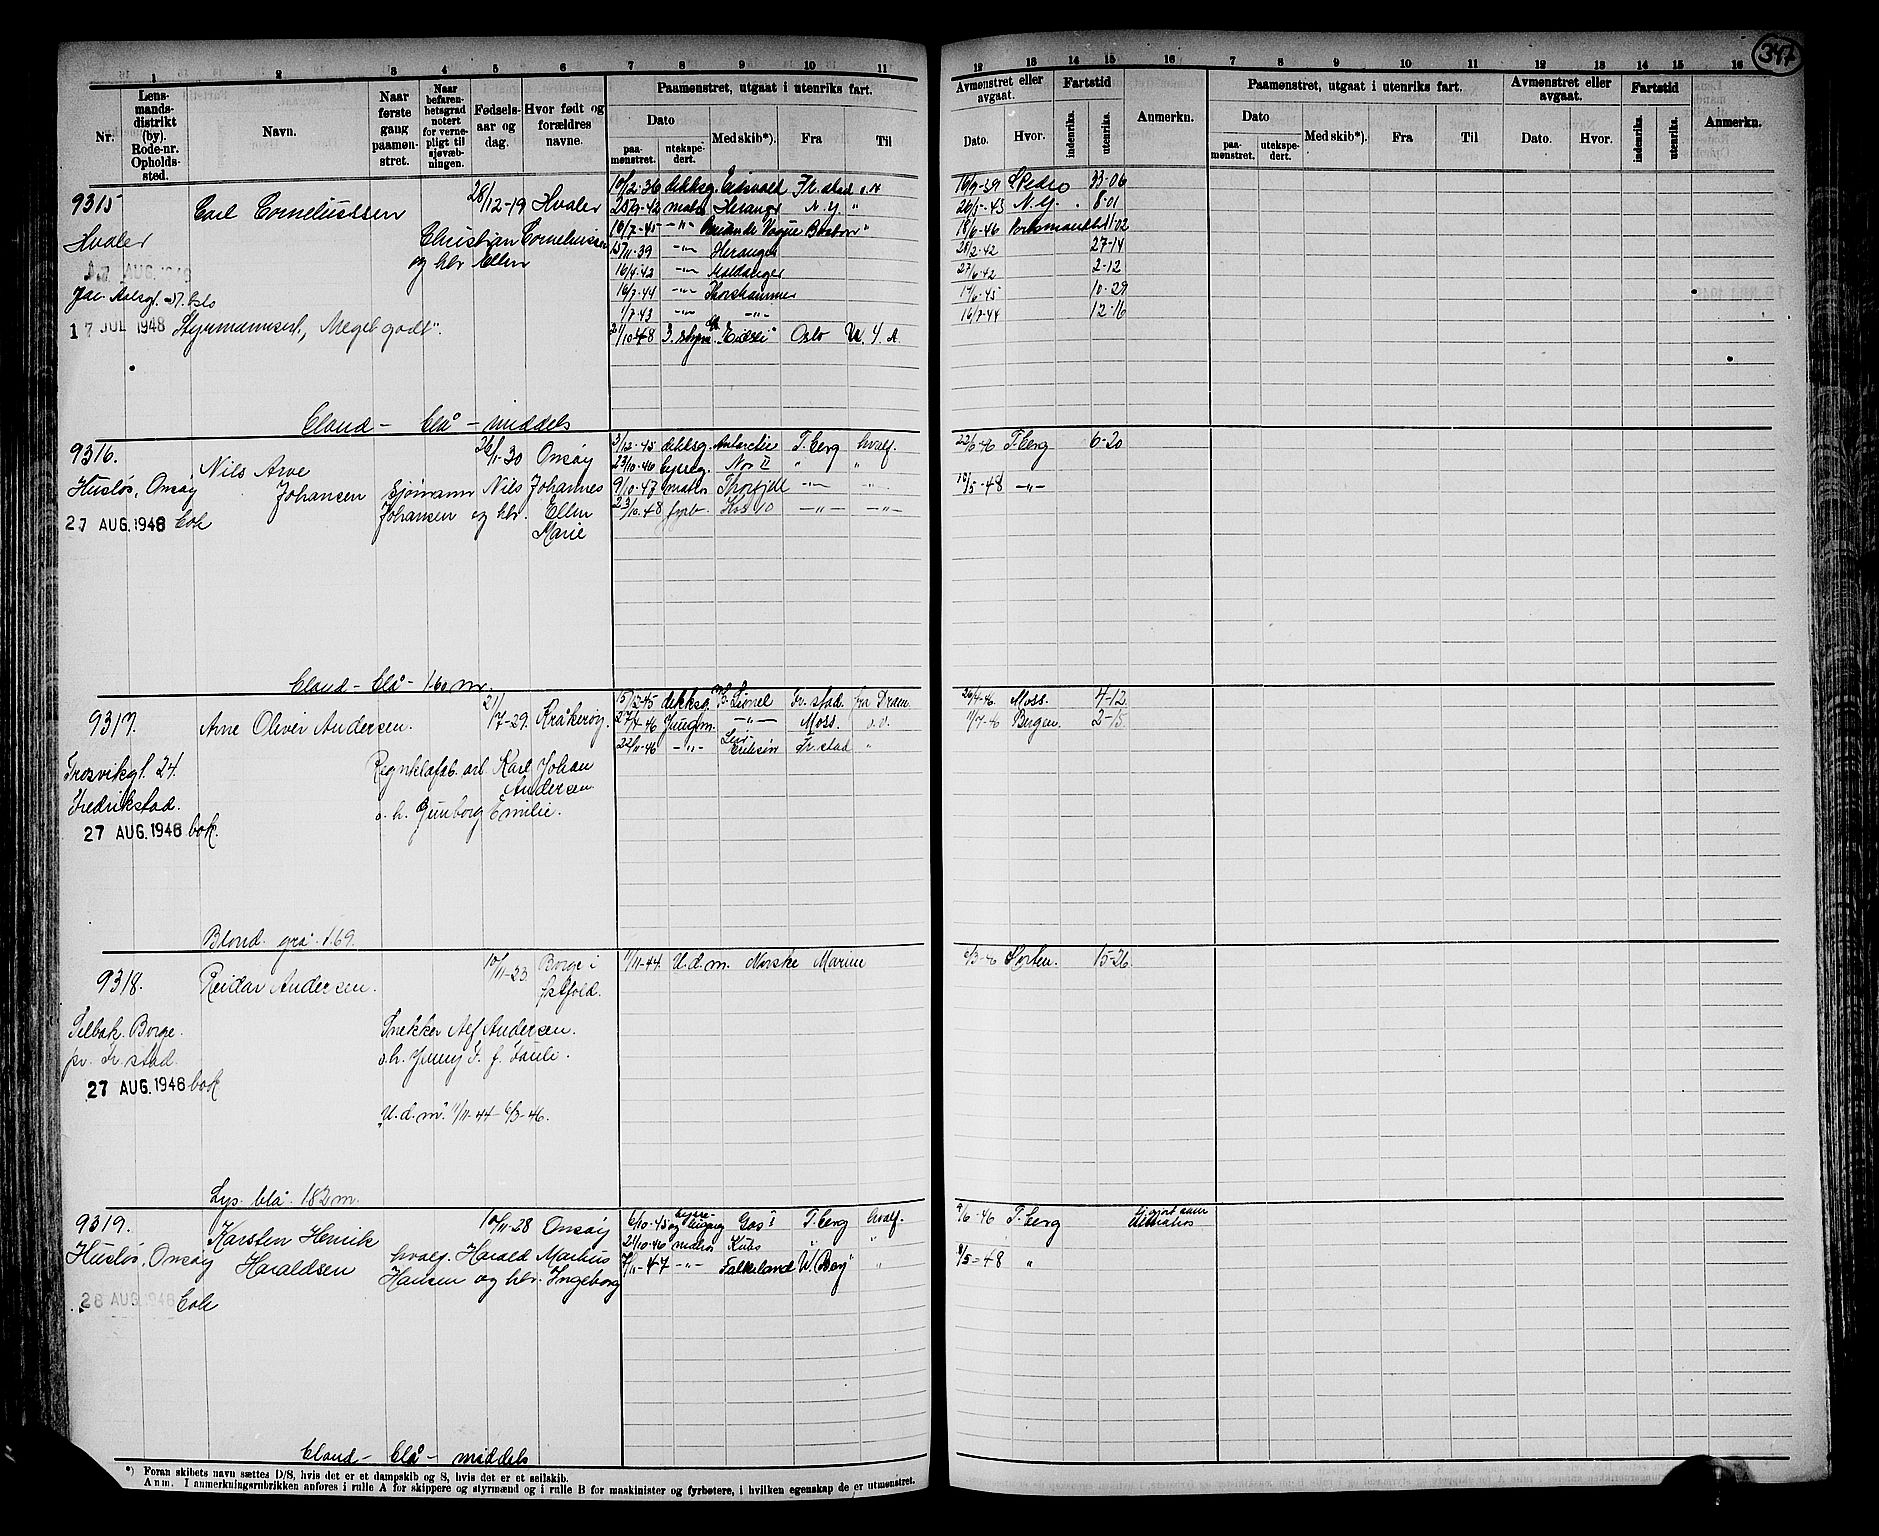 347
1 2 3 4 5 6 7 8 9 10 11
12 13 14 15 16 7 8 9 10 11 12 13 14 15 16
Nr.
Lensmandsdistrikt (by). Rode-nr. Opholdssted.
Navn.
Naar første gang paamønstret.
Naar befarenbetsgrad notert for vernepligt til sjøvæbningen.
Fødselsaar og dag.
Hvor født og forældres navne.
Paamønstret, utgaat i utenriks fart.
Dato
paamønstret.
utekspedert.
Med skib*).
Fra
Til
Avmønstret eller avgaat.
Dato.
Hvor.
Fartstid
indenriks.
utenriks.
Anmerkn.
Paamønstret, utgaat i utenriks fart.
Dato
paamønstret.
utekspedert.
Med skib*).
Fra
Til
Avmønstret eller avgaat.
Dato.
Hvor.
Fartstid
indenriks.
utenriks.
Anmerkn.
9315 Carl Corneliussen 28/12-19 Hvaler
Hvaler Christian Corneliussen
og hbr Ellen
17 JUL 1948 Styrmannsert, "Meget godt".
10/2-36 dekksg. Eidsvold Fr.stad
25/9-42 matr. Heranger N.Y. "
18/7-45 -"- Boston "
25/11-39 -"- Heranger
16/4-42 -"-
16/7-44 -"- Thorshammer
1/7-43 -"- -"-
21/10-48 3. styrm Oslo U.S.A.
16/9-39 S Pedro 33-06
26/5-43 N.Y. 8-01
18/6-46 Portsmouth 11-02
28/2-42 27-14
27/6-42 2-12
17/6-45 10-29
16/7-44 12-16
Bland - blå - middels
9316. Nils Arve Johansen 26/1-30 Onsøy
Husløs, Onsøy Sjømann Nils Johannes
27 AUG. 1948 bok Johansen og hbr. Ellen
Marie
3/12-45 dekksg. Antarctic T.berg hvalf.
23/10-46 byssg. Nor II " "
9/10-47 matros Thorfjell -"- "
23/10-48 fyrb. Kos 10 -"- -"-
22/6-46 T.berg 6-20
18/5-48 -"-
Bland - blå - 1.60 m.
9317. Arne Oliver Andersen. 21/17-29. Kråkerøy.
Trosvikgt. 24. Karl Johan
Andersen
Fredrikstad. o. h. Gunborg Emilie.
27 AUG. 1948 bok.
15/12-45 dekksg. Lionel Fr. stad. fra Dram.
27/4-46 Jungm. -"- Moss. o.o.
22/11-46 -"- Leiv Eiriksson Fr. stad "
26/4-46. Moss. 4-12.
7/7-46 Bergen. 2-15.
Blond. grå. 1.69.
9318. Reidar Andersen. 10/11-23 Borge i
Østfold.
Selbak. Borge. Snekker Alf Andersen.
pr. Fr. stad. o.h. Jenny F. f. Pauli.
27 AUG. 1948 bok
"U.d.m." 1/11-44 - 6/3-46.
1/11-44. U.d.m. Norske Marine
6/3-46 Horten. 15-26.
Lys. blå. 1.82 m.
9319. Karsten Henrik Haraldsen 10/11-28 Onsøy
Husløs, Onsøy hvalf. Harald Markus
Hansen og hbr. Ingeborg
28 AUG. 1948 bok
6/10-45 Gos I T.berg hvalf.
21/10-46 matros Kubs " "
7/11-47 -"- Falkeland W.(Bay) "
9/6-46 T.berg
8/5-48 "
Bland - blå - middels
*) Foran skibets navn sættes D/S, hvis det er et dampskib og S, hvis det er et seilskib.
Anm. I anmerkningsrubrikken anføres i rulle A for skippere og styrmænd og i rulle B for maskinister og fyrbøtere, i hvilken egenskap de er utmønstret.